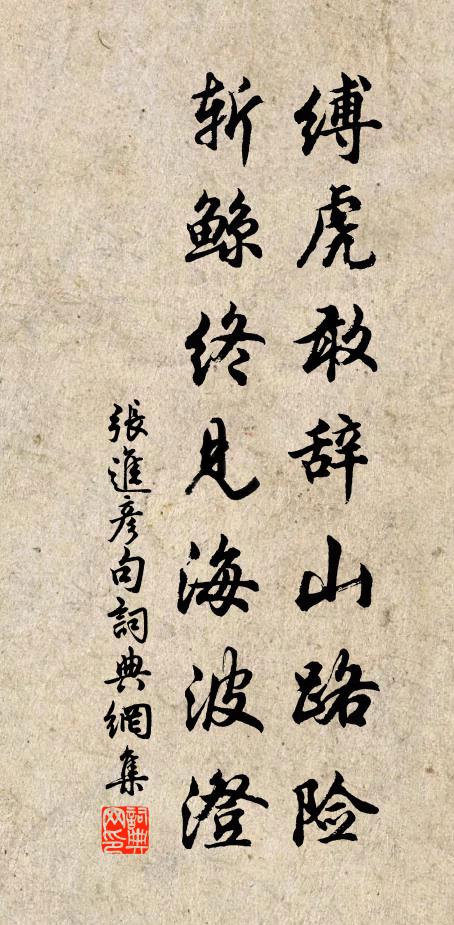 缚虎敢辞山路险
斩鲸终见海波澄
張進彦句詞典網集
詞典网印